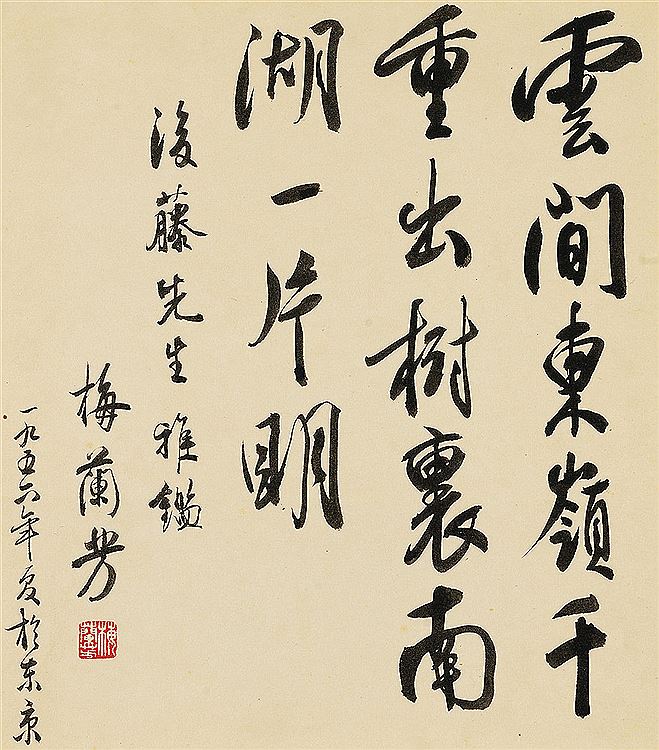 雲間東嶺千
重出樹裏南
湖一片明
後藤先生雅鑑
梅蘭芳
一九五六年夏於东京
梅蘭芳